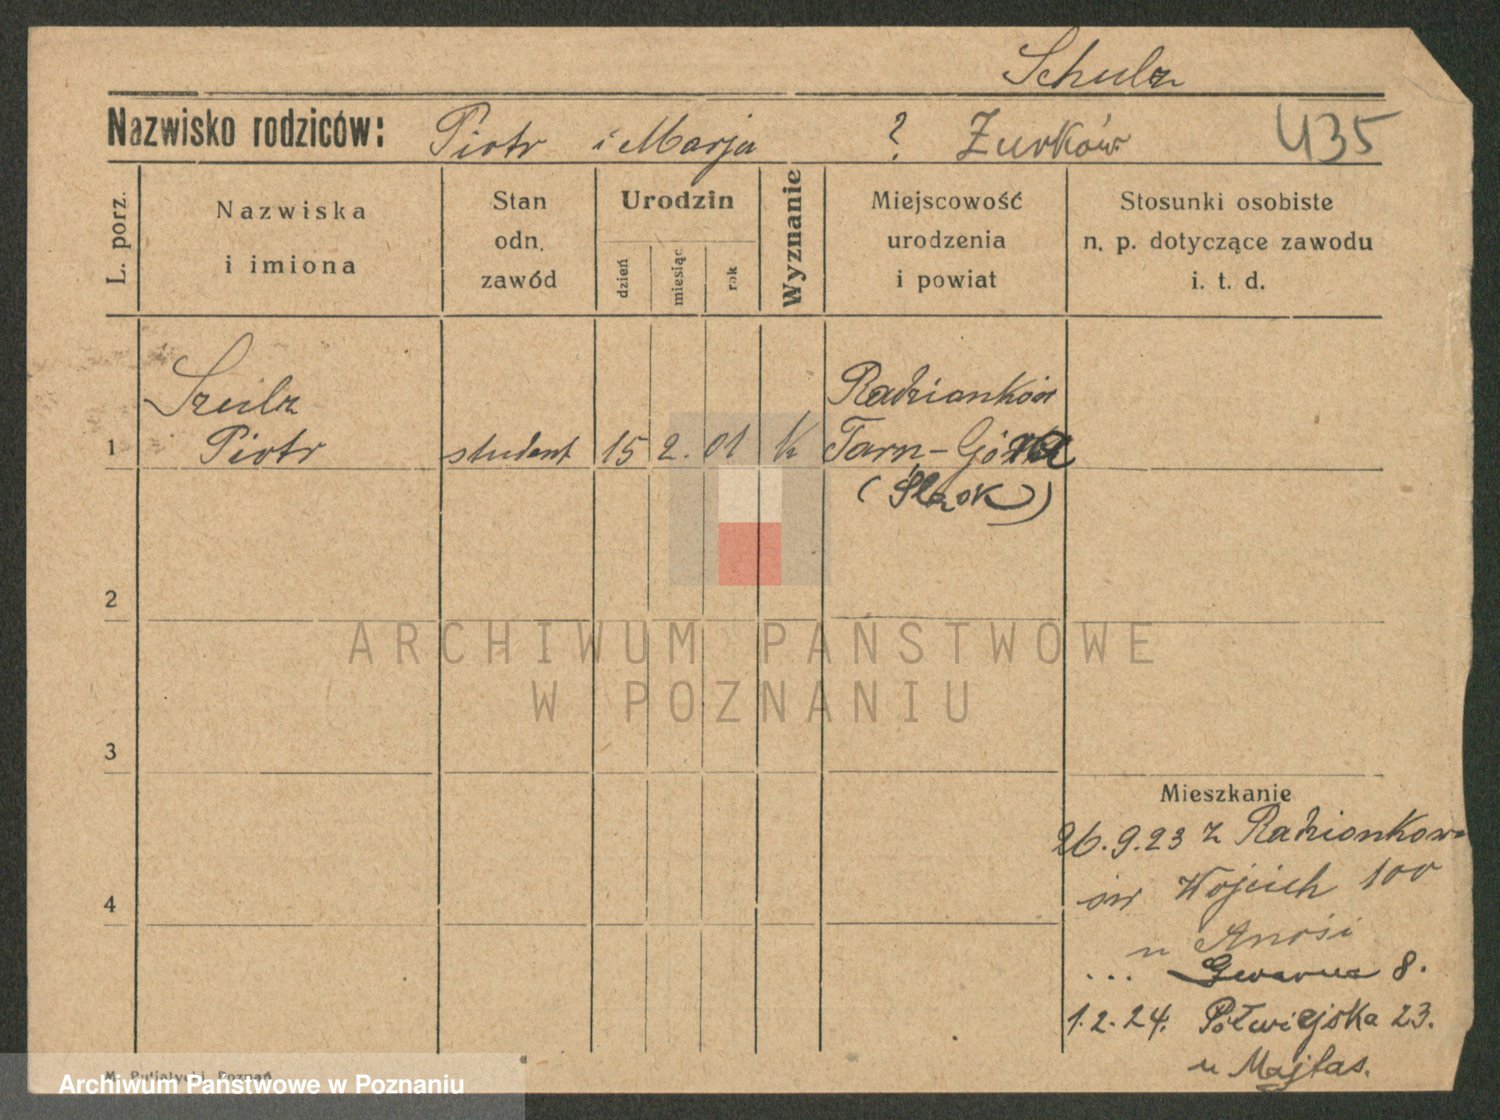 Schulz
Nazwisko rodziców: Piotr i Marja ? Żurków 435
L. porz.
Nazwiska
i imiona
Stan
odn.
zawód
Urodzin
dzień
miesiąc
rok
Wyznanie
Miejscowość
urodzenia
i powiat
Stosunki osobiste
n. p. dotyczące zawodu
i. t. d.
Szulz Radzionków
1 Piotr student 15 2. 01 k Tarn-Góra
(Śląsk)
2
3
4
Mieszkanie
26.9.23 z Radzionkowa
św Wojciech 100
u
... 8.
1.2.24. Półwiejska 23.
u Majtas.
ARCHIWUM PAŃSTWOWE
W POZNANIU
Archiwum Państwowe w Poznaniu